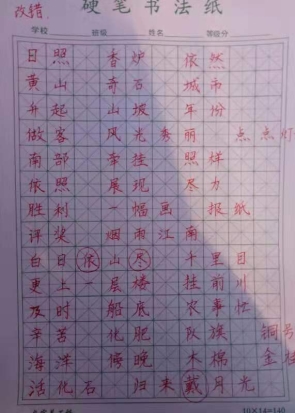 改错
硬笔书法纸
学校 班级 姓名 等级分
日照 香炉 依然
黄山 奇石 城市
升起 山坡 年份
做客 风光秀丽 点点灯
南部 牵挂 照样
依照 展现 尽力
胜利 一幅画 报纸
评奖 烟雨江南
白日依山尽 千里目
更上一层楼 挂前川
及时 船底 农事忙
辛苦 化肥 队旗 铜号
海洋 傍晚 木棉 金桂
活化石 归来 戴月光
10×14=140